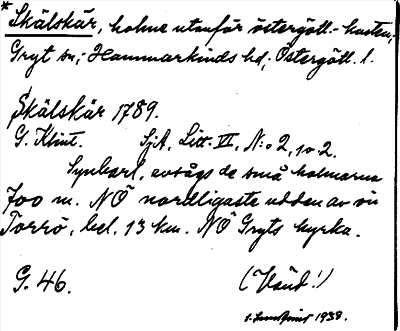 *Skälskär, holme utanför östergött.-kusten,
Gryt sn; Hammarkinds hd; Östergötl. l.
Skälskär 1789.
G. Klint. SjA, Litt. III, N:o 2, 10.2.
Synbarl. avsågs de små holmarna
700 m. NÖ nordligaste udden av ön
Torrö, bel. 13 km. NÖ Gryts kyrka.
G. 46. (Vänd!)
S. Lundqvist 1938.